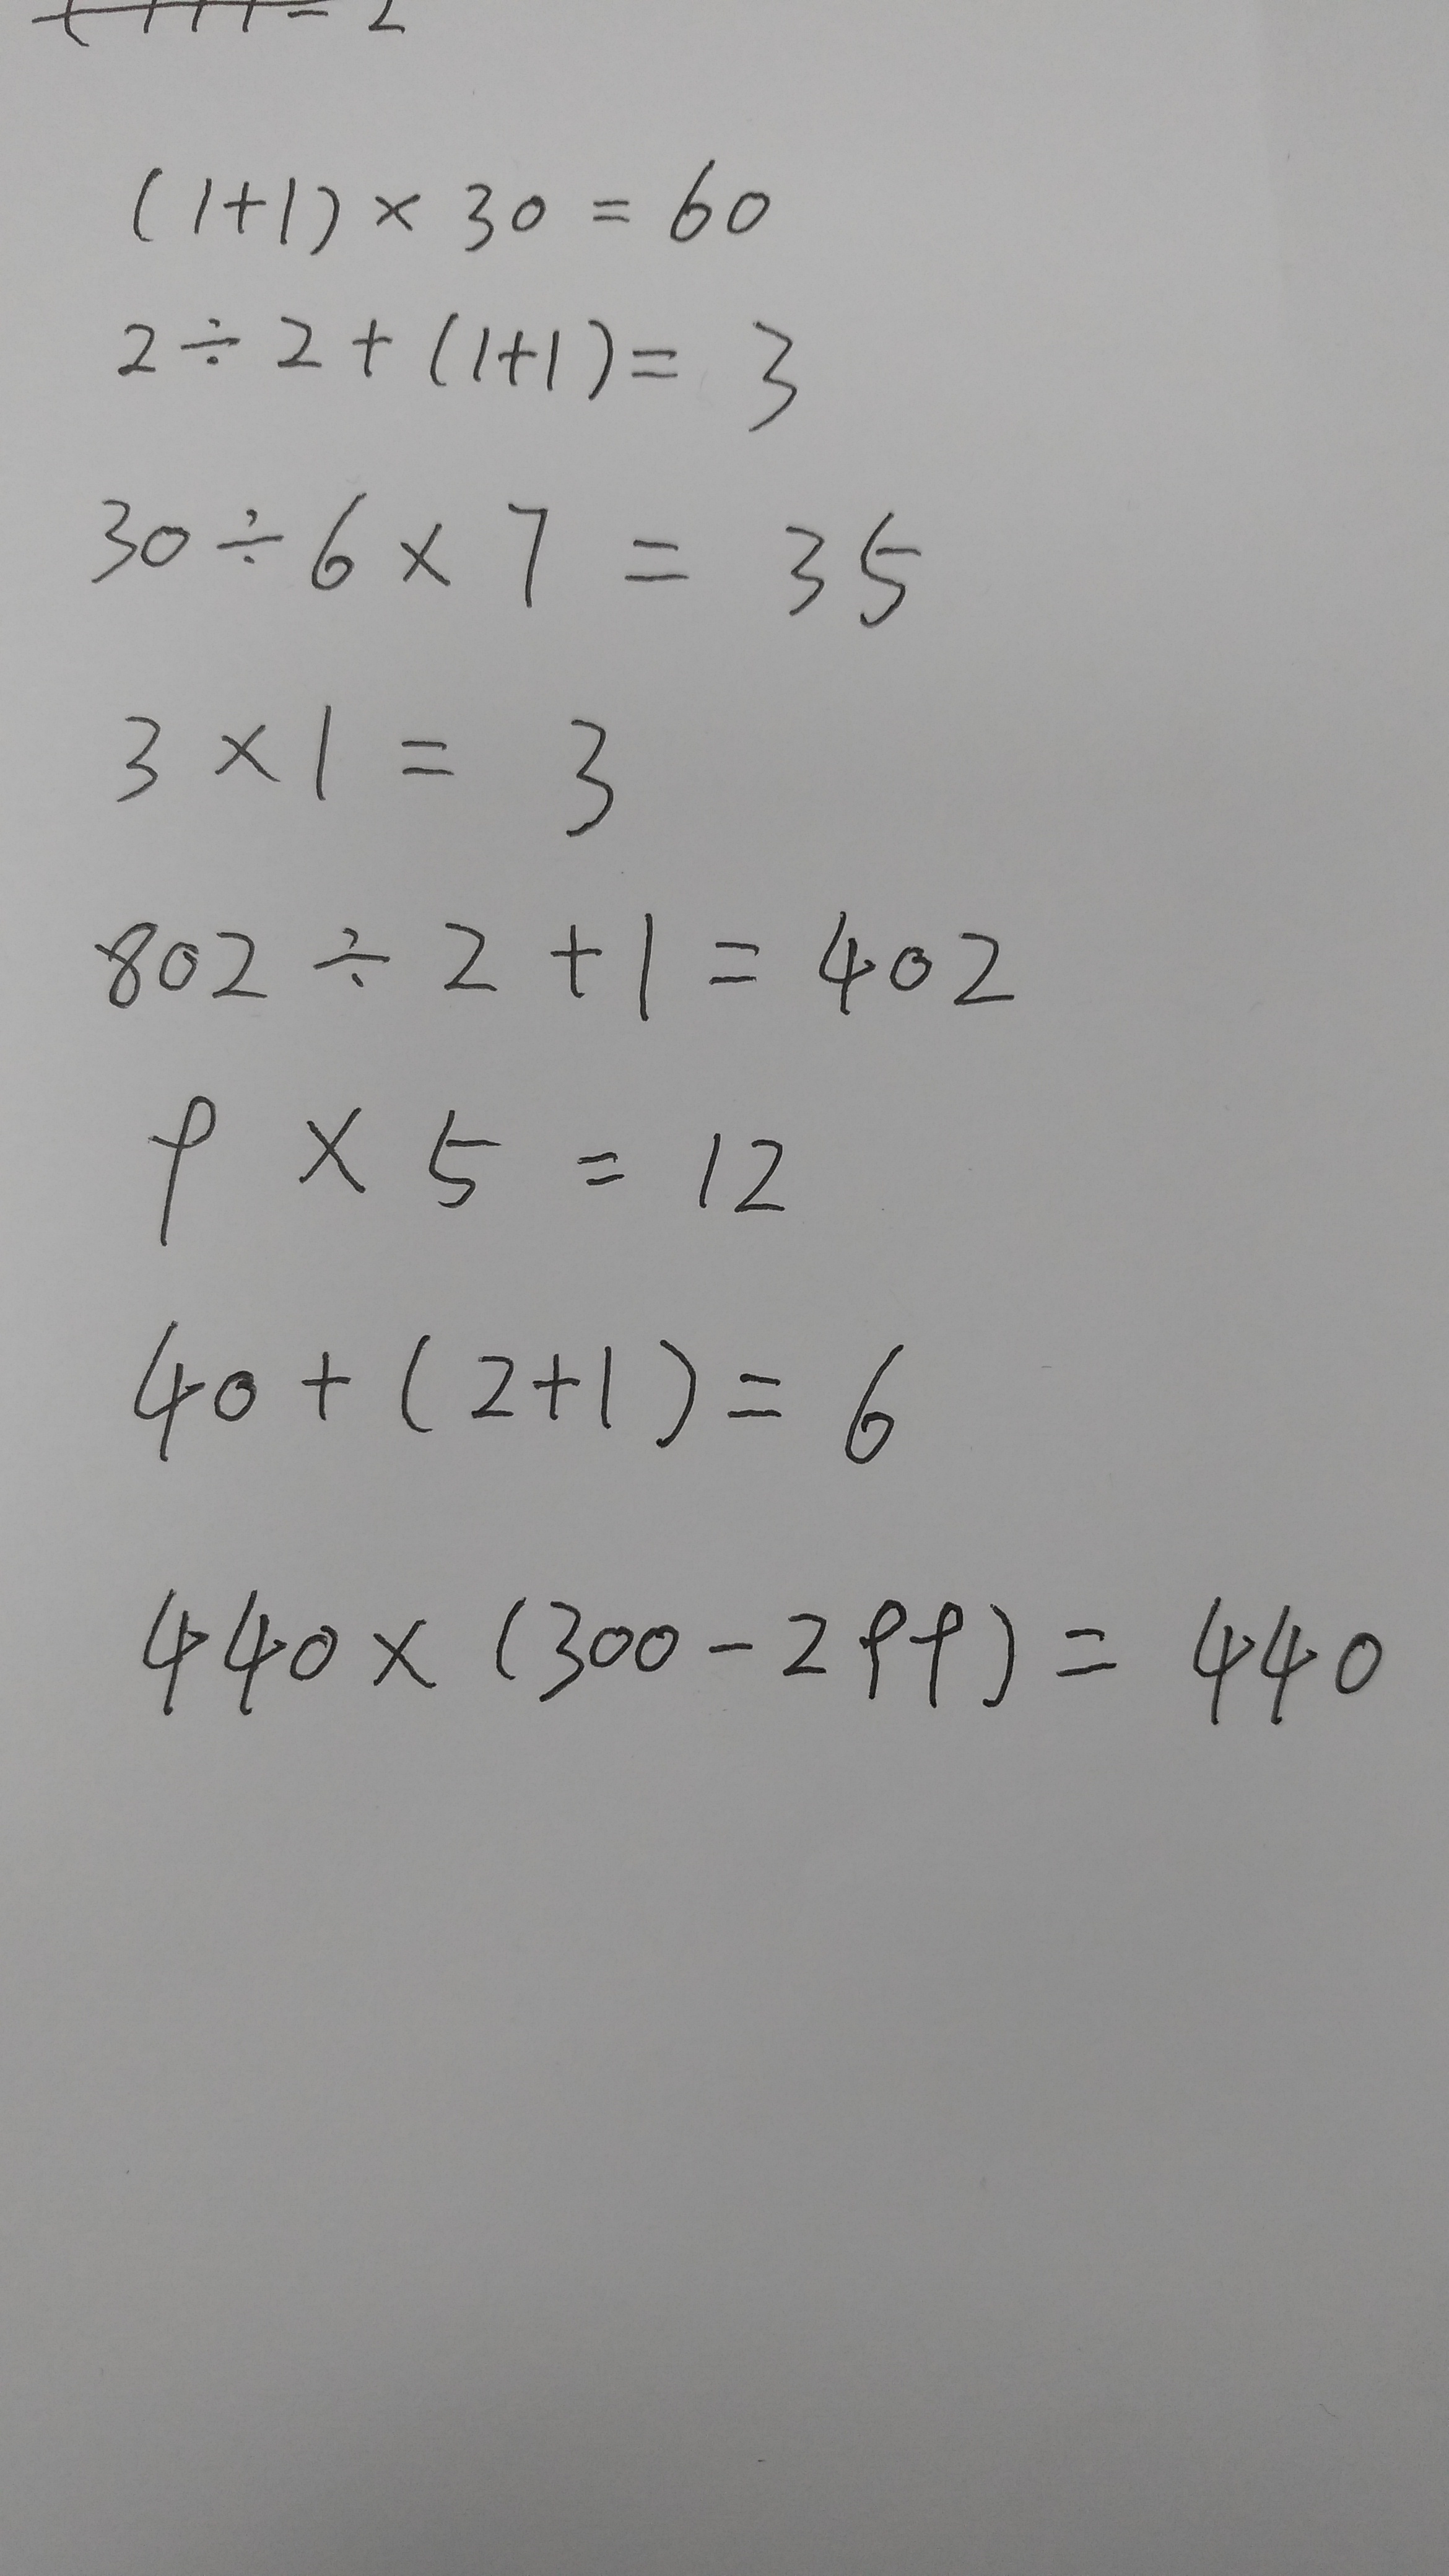 (1+1)×30=60
2÷2+(1+1)=3
30÷6×7=35
3×1=3
802÷2+1=402
9×5=12
40+(2+1)=6
440×(300-299)=440